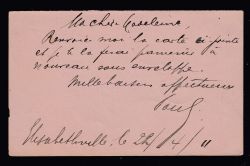 Ma chère Madeleine,
Renvoie moi la carte ci-jointe
et je te la ferai parvenir à
nouveau sous enveloppe.
Mille baisers affectueux
Paul
Elisabethville, le 24/4/11